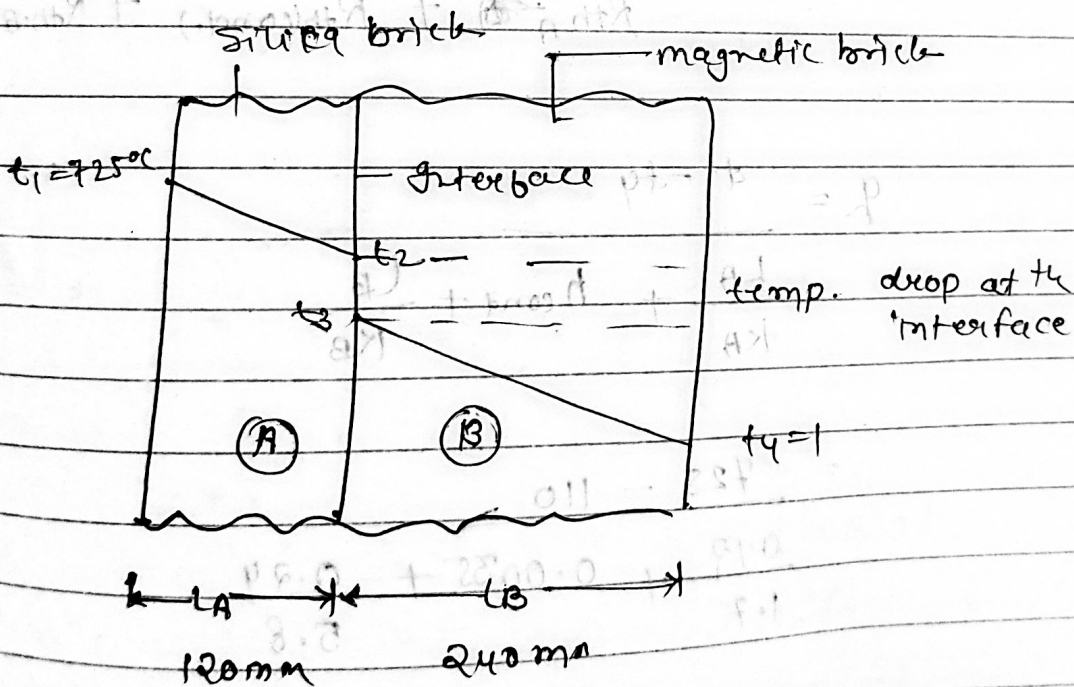 silica brick
magnetic brick
t₁ = 725°C
Interface
t₂
t₃
temp. drop at the
interface
A
B
t₄ = 1
LA
LB
120mm
240mm